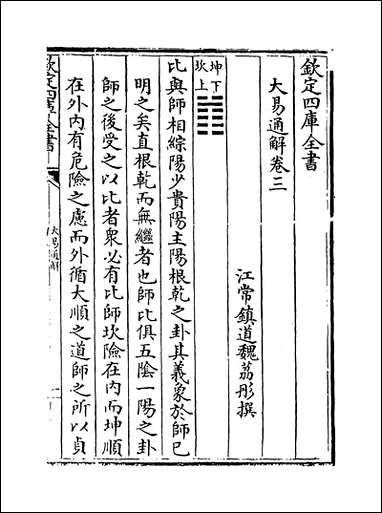 欽定四庫全書
大易通解卷三
江常鎮道魏荔彤撰
坤下
坎上
比與師相綜陽少貴陽主陽根乾之卦其義象於師已
明之矣直根乾而無繼者也師比俱五陰一陽之卦
師之後受之以比者衆必有比師坎險在內而坤順
在外內有危險之慮而外循大順之道師之所以貞
欽定四庫全書
大易通解
一